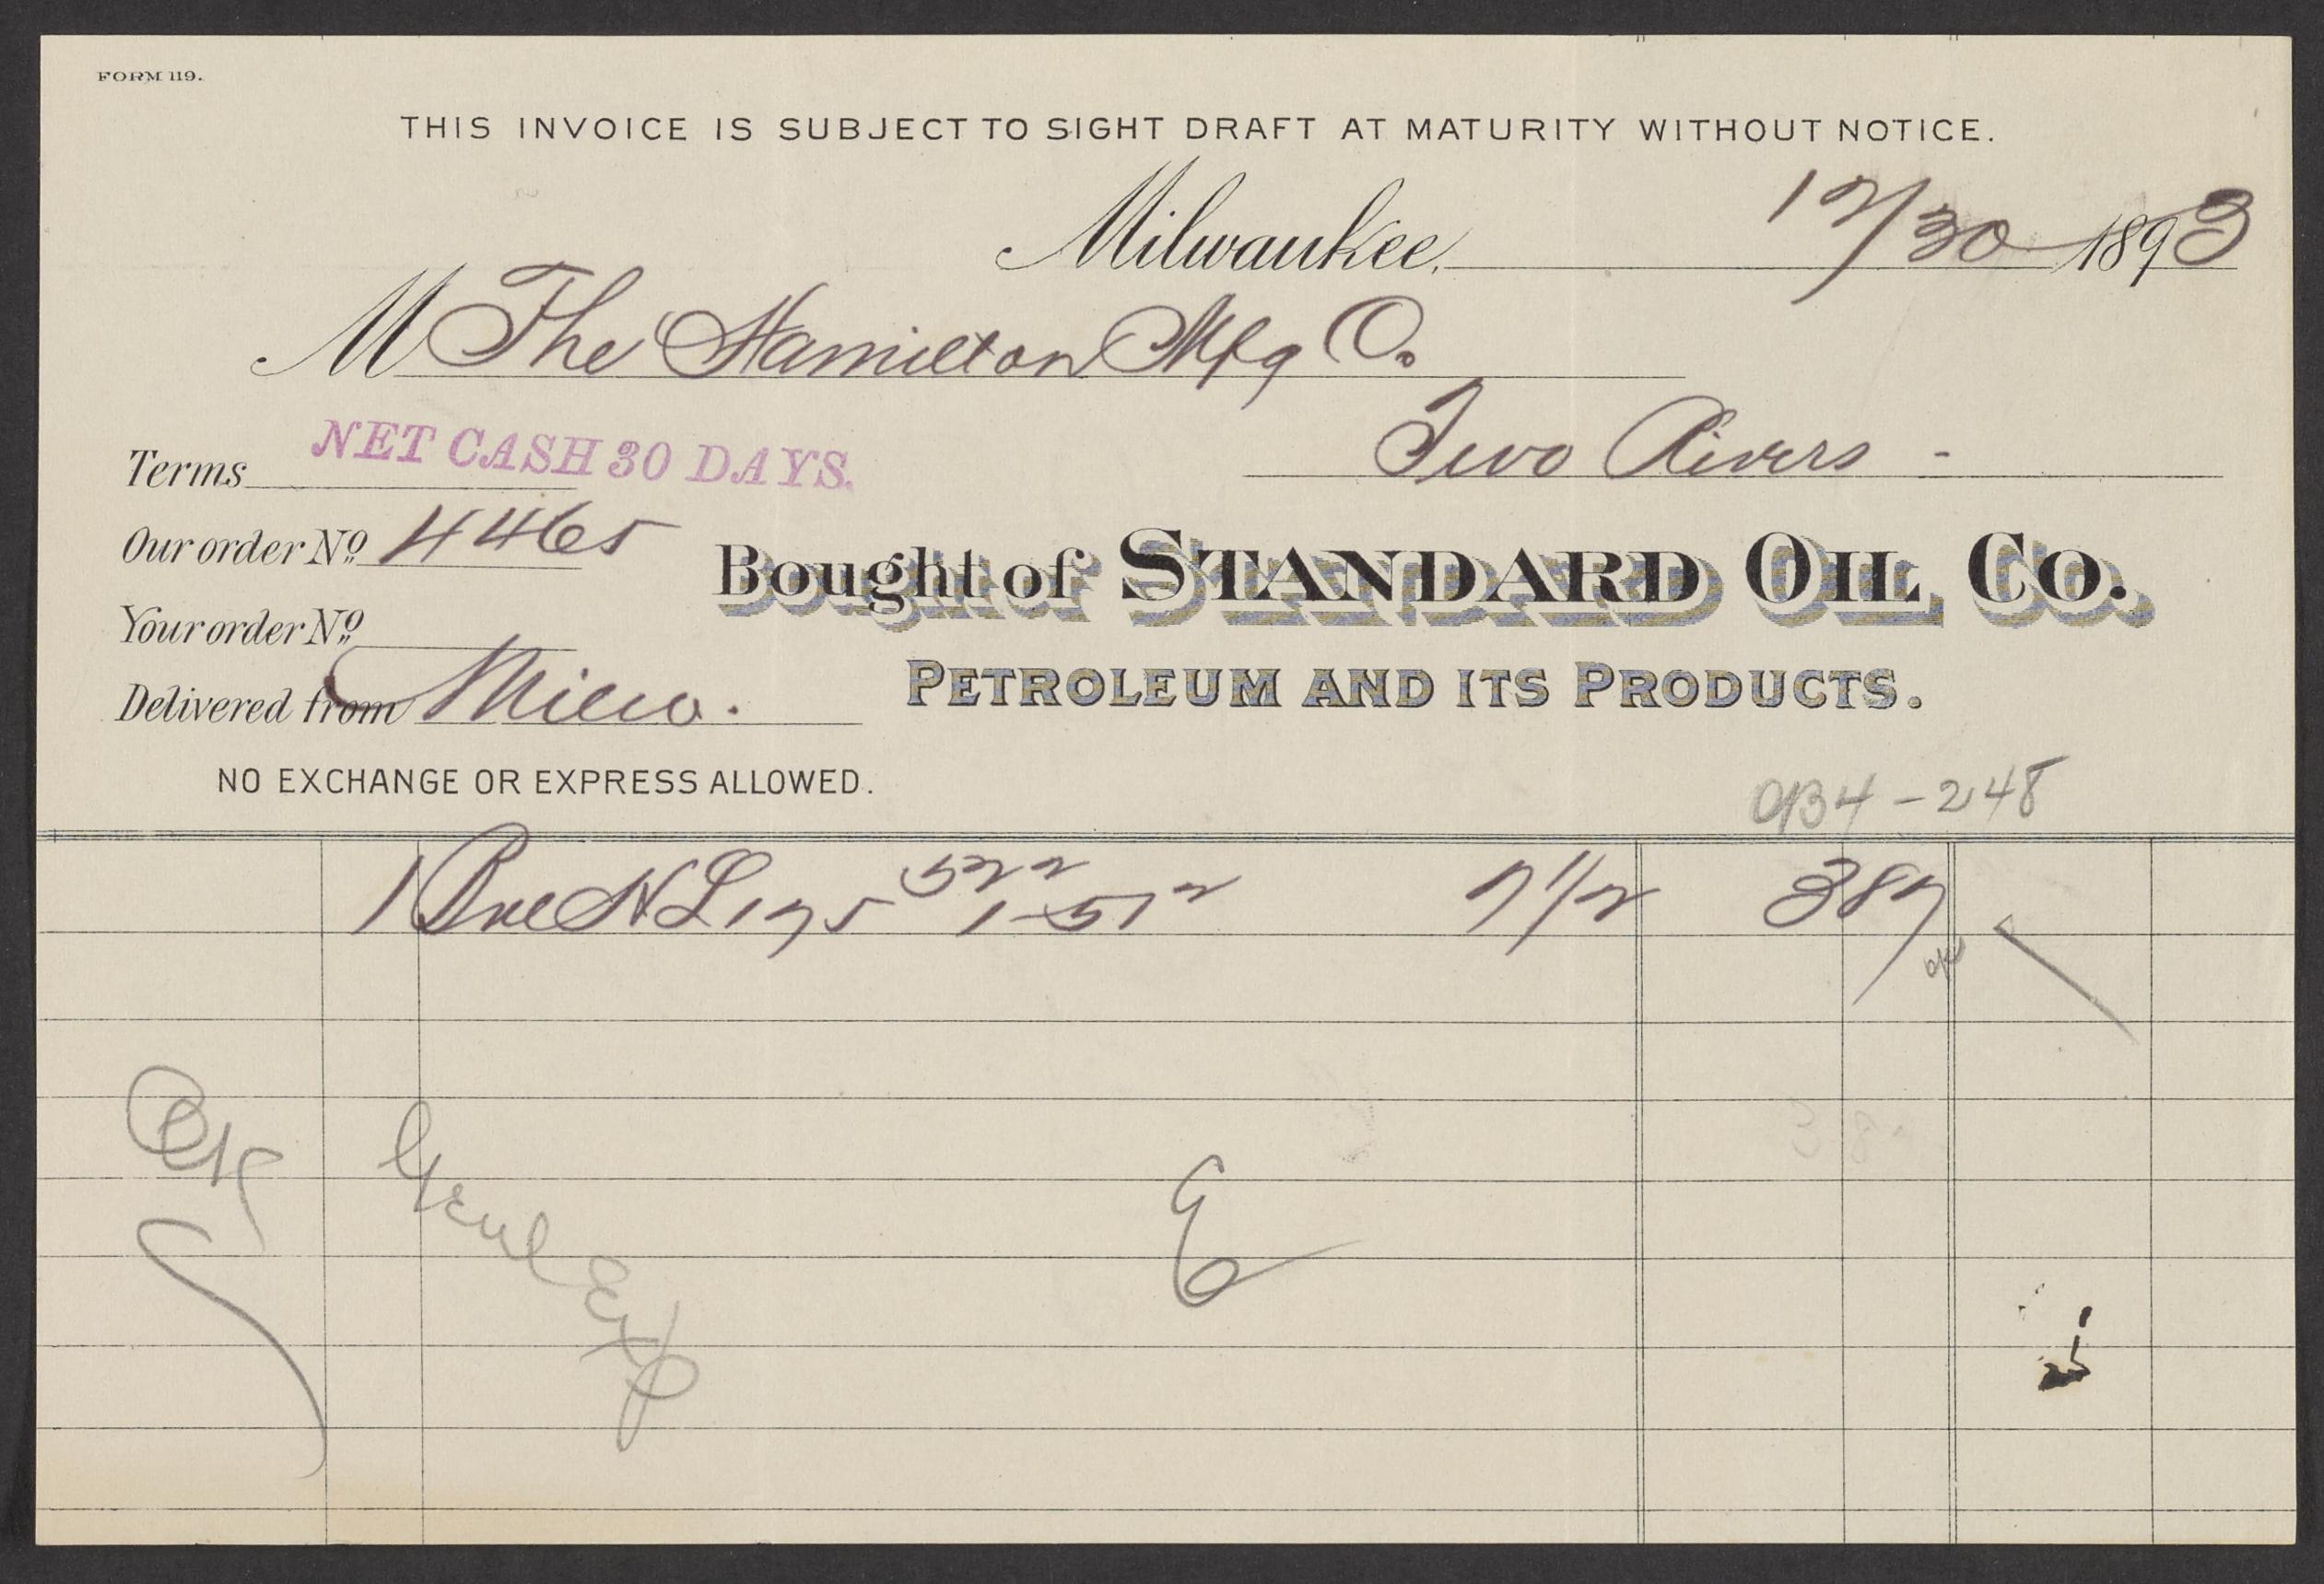 FORM 119.
THIS INVOICE IS SUBJECT TO SIGHT DRAFT AT MATURITY WITHOUT NOTICE.
Milwaukee, 12/30 1893
M The Hamilton Mfg Co.
Two Rivers -
Terms NET CASH 30 DAYS.
Our order No. 4465
Bought of STANDARD OIL CO.
Your order No.
PETROLEUM AND ITS PRODUCTS.
Delivered from Milw.
NO EXCHANGE OR EXPRESS ALLOWED.
934-248
1 Bbl 175 52 2 1-51 2 7 1/2 387
OK
Genl Exp